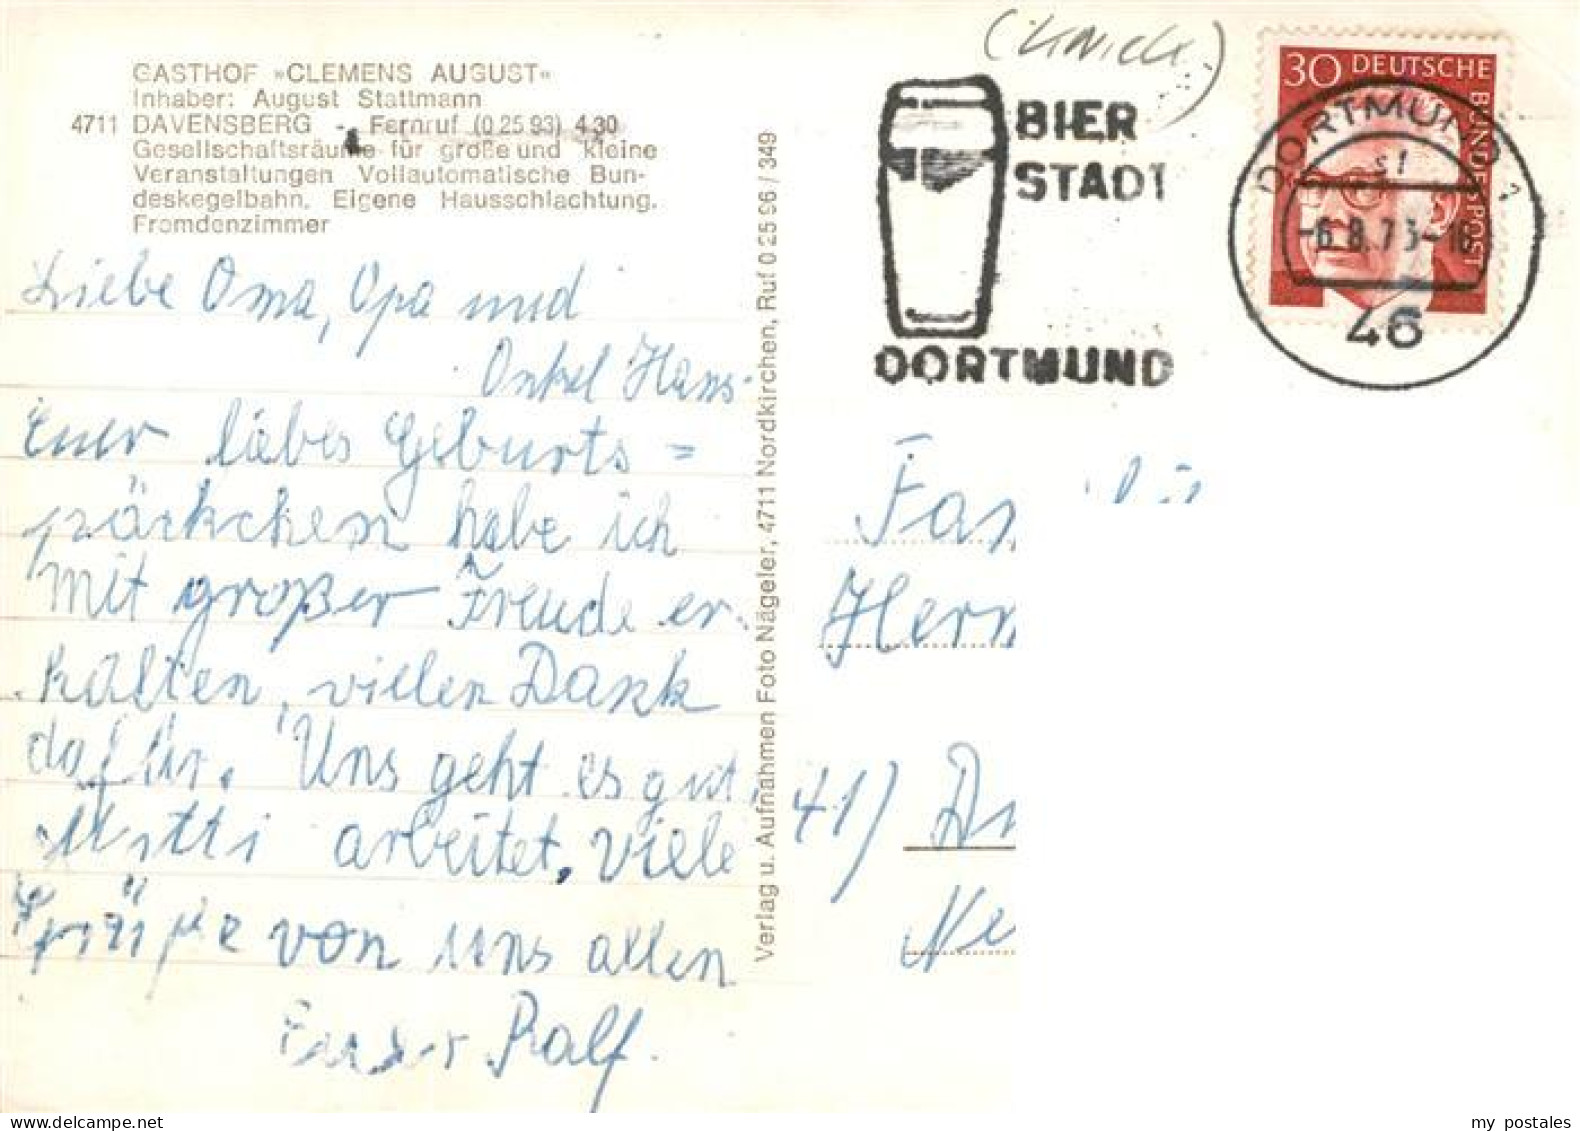 GASTHOF »CLEMENS AUGUST«
Inhaber: August Stattmann
4711 DAVENSBERG - Fernruf (0 25 93) 4 30
Gesellschaftsräume für große und kleine
Veranstaltungen Vollautomatische Bun-
deskegelbahn. Eigene Hausschlachtung.
Fremdenzimmer
Liebe Oma, Opa und
Onkel Hans.
Euer liebes Geburts =
päckchen habe ich
mit großer Freude er-
halten, vielen Dank
dafür. Uns geht es gut,
Mutti arbeitet. Viele
Grüße von uns allen
Euer Ralf.
Verlag u. Aufnahmen Foto Nägeler, 4711 Nordkirchen, Ruf 0 25 96 / 349
BIER
STADT
DORTMUND
30 DEUTSCHE BUNDESPOST
DORTMUND 1
sf
-6.8.73-16
46
Fam
Herm
41)
Ne
www.delcampe.net
my postales